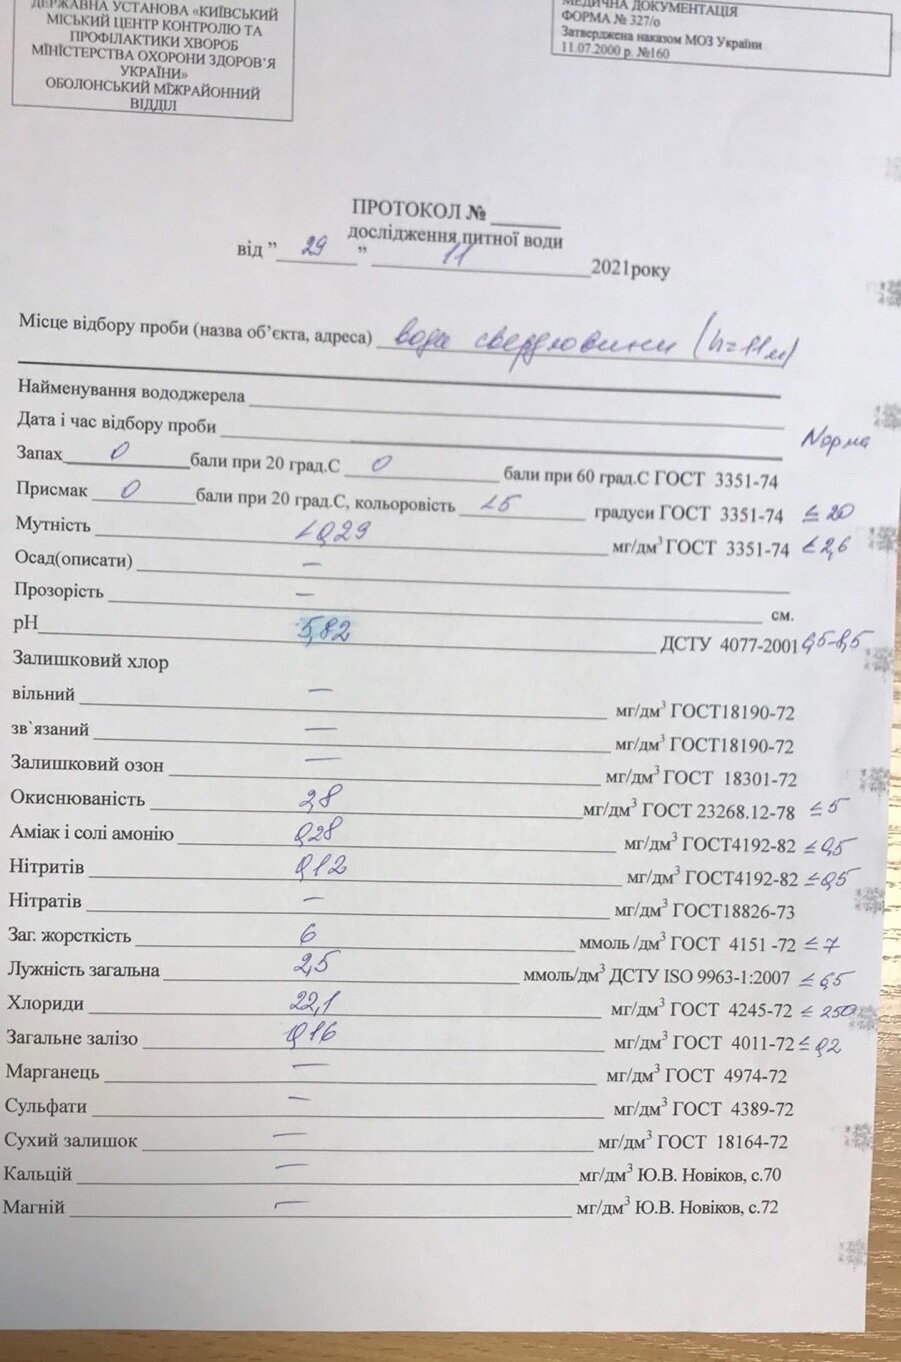 ДЕРЖАВНА УСТАНОВА «КИЇВСЬКИЙ
МІСЬКИЙ ЦЕНТР КОНТРОЛЮ ТА
ПРОФІЛАКТИКИ ХВОРОБ
МІНІСТЕРСТВА ОХОРОНИ ЗДОРОВ'Я
УКРАЇНИ»
ОБОЛОНСЬКИЙ МІЖРАЙОННИЙ
ВІДДІЛ
МЕДИЧНА ДОКУМЕНТАЦІЯ
ФОРМА № 327/о
Затверджена наказом МОЗ України
11.07.2000 р. №160
ПРОТОКОЛ № ______
дослідження питної води
від " 29 " 11 2021року
Місце відбору проби (назва об'єкта, адреса) вода свердловини (h=11м)
Найменування вододжерела
Дата і час відбору проби
Норма
Запах 0 бали при 20 град.С 0 бали при 60 град.С ГОСТ 3351-74
Присмак 0 бали при 20 град.С, кольоровість <5 градуси ГОСТ 3351-74 ≤ 20
Мутність <0,29 мг/дм³ ГОСТ 3351-74 ≤ 2,6
Осад(описати) —
Прозорість — см.
рН 5,82 ДСТУ 4077-2001 6,5-8,5
Залишковий хлор
вільний — мг/дм³ ГОСТ18190-72
зв`язаний — мг/дм³ ГОСТ18190-72
Залишковий озон — мг/дм³ ГОСТ 18301-72
Окиснюваність 2,8 мг/дм³ ГОСТ 23268.12-78 ≤ 5
Аміак і солі амонію 0,28 мг/дм³ ГОСТ4192-82 ≤ 0,5
Нітритів 0,12 мг/дм³ ГОСТ4192-82 ≤ 0,5
Нітратів — мг/дм³ ГОСТ18826-73
Заг. жорсткість 6 ммоль /дм³ ГОСТ 4151 -72 ≤ 7
Лужність загальна 2,5 ммоль/дм³ ДСТУ ISO 9963-1:2007 ≤ 6,5
Хлориди 22,1 мг/дм³ ГОСТ 4245-72 ≤ 250
Загальне залізо 0,16 мг/дм³ ГОСТ 4011-72 ≤ 0,2
Марганець — мг/дм³ ГОСТ 4974-72
Сульфати — мг/дм³ ГОСТ 4389-72
Сухий залишок — мг/дм³ ГОСТ 18164-72
Кальцій — мг/дм³ Ю.В. Новіков, с.70
Магній — мг/дм³ Ю.В. Новіков, с.72